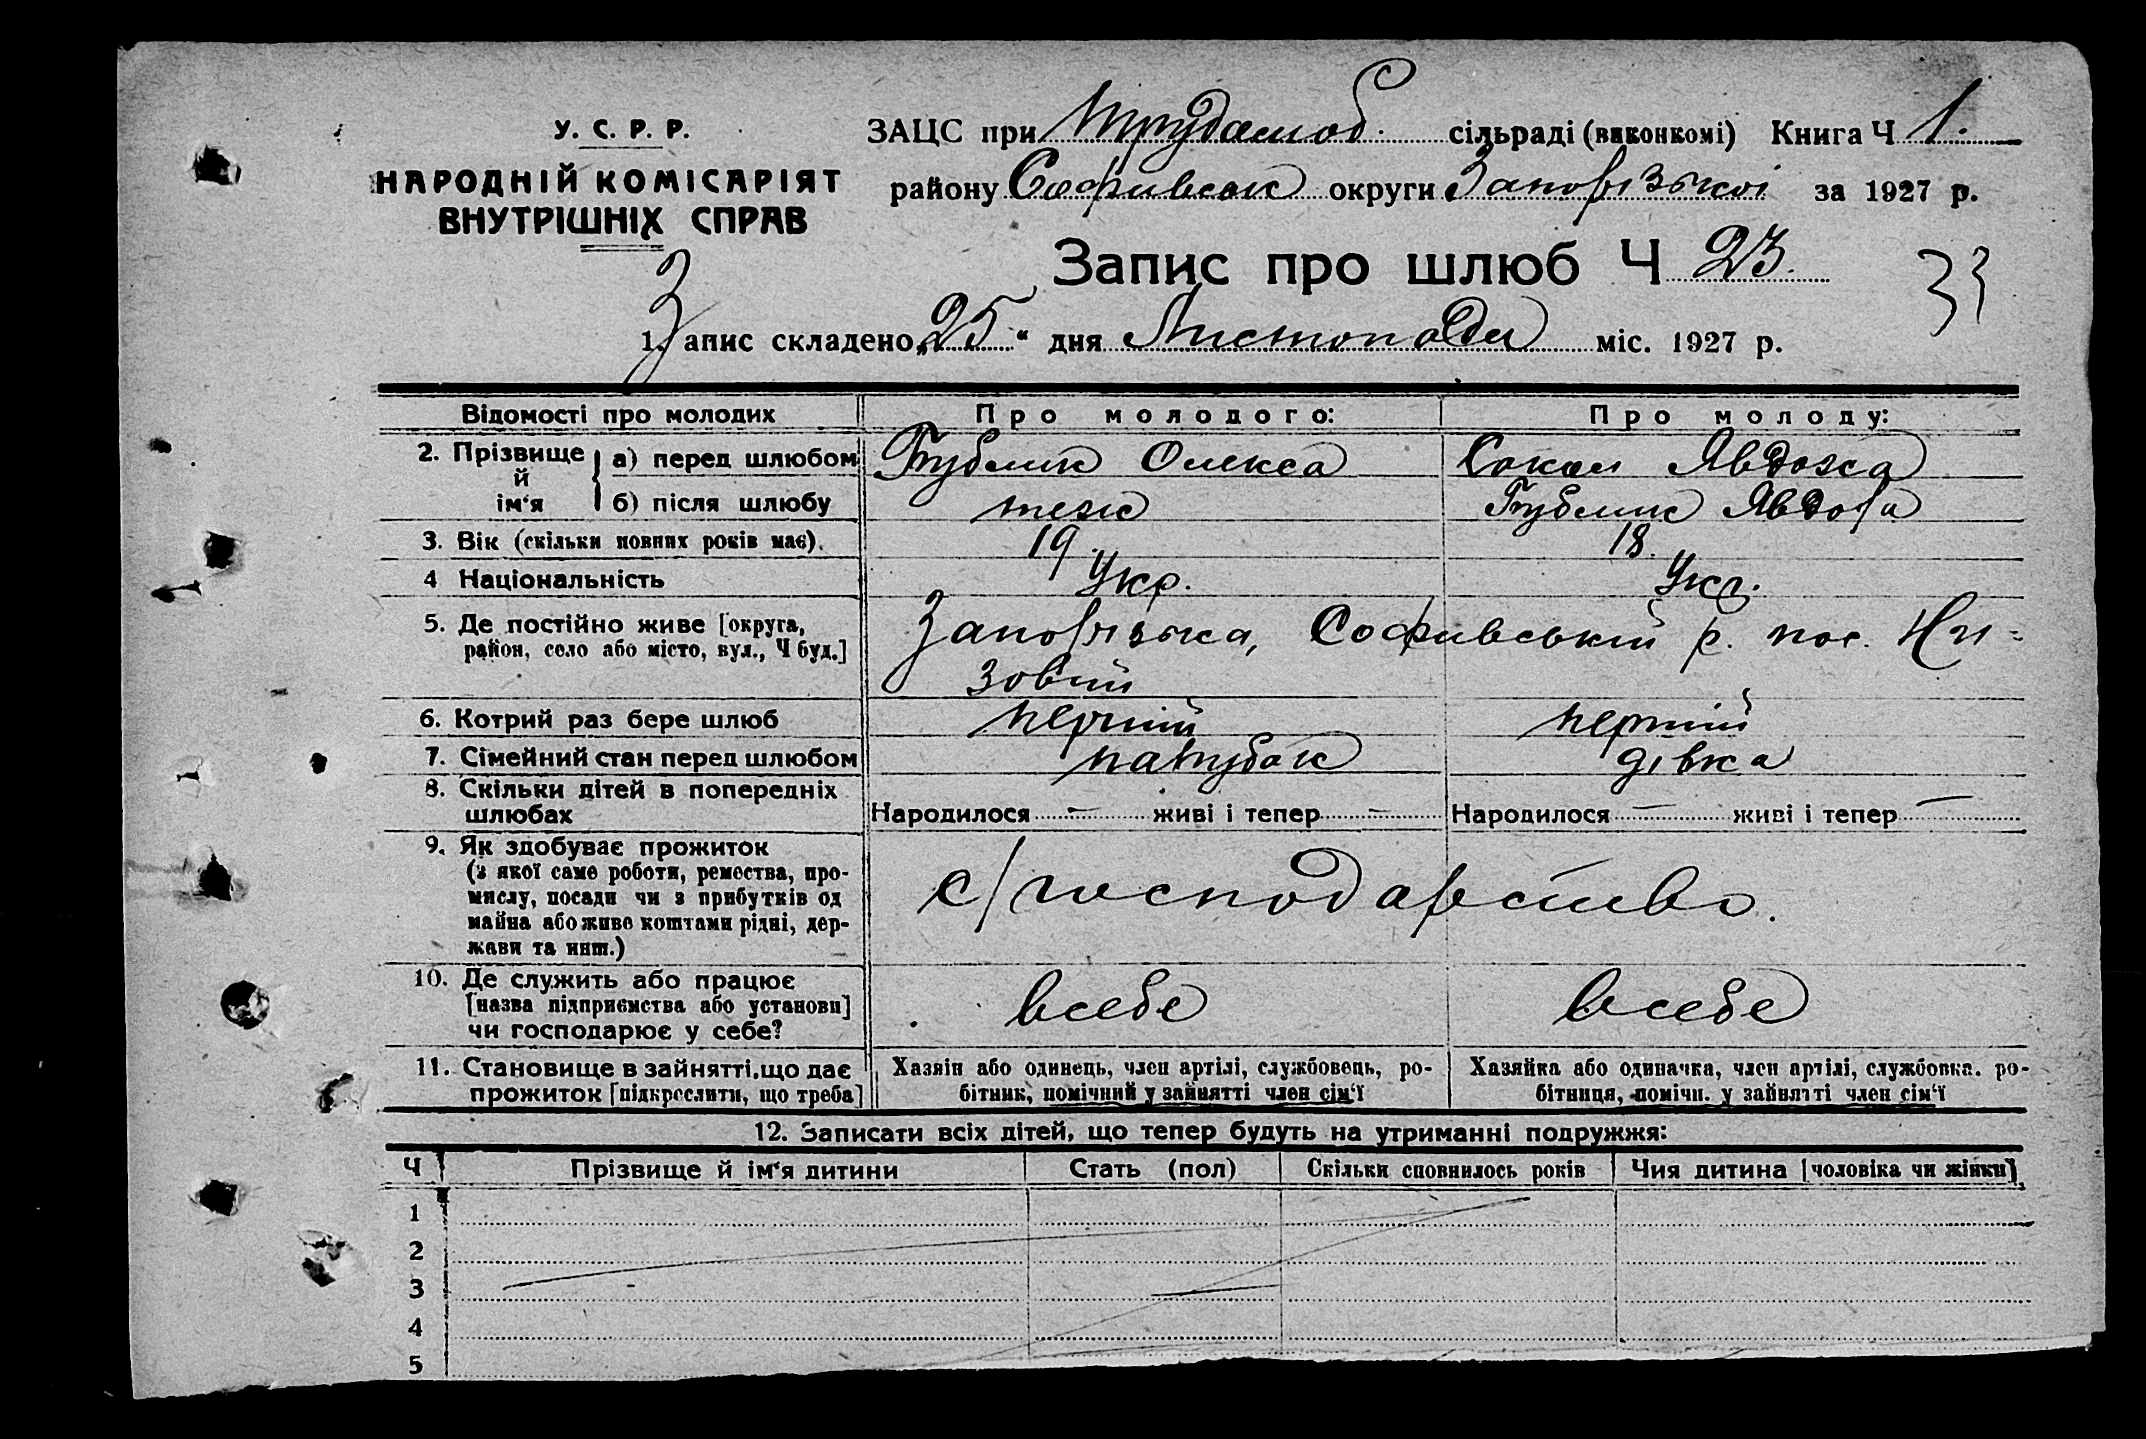 У. С. Р. Р.
НАРОДНІЙ КОМІСАРІЯТ
ВНУТРІШНІХ СПРАВ
ЗАЦС при Трудолюб. сільраді (виконкомі) Книга Ч 1.
району Софивськ округи Запорізької за 1927 р.
Запис про шлюб Ч 23.
33
1. Запис складено „25“ дня Листопада міс. 1927 р.
Відомості про молодих Про молодого: Про молоду:
2. Прізвище й ім‘я а) перед шлюбом Бублик Олекса Сокол Явдоха
б) після шлюбу теж Бублик Явдоха
3. Вік (скільки повних років має). 19. 18.
4 Національність Укр. Укр.
5. Де постійно живе [округа, район, село або місто, вул., Ч буд.] Запорізька, Софивський р. пос. Ни=
зовий
6. Котрий раз бере шлюб перший перший
7. Сімейний стан перед шлюбом парубок дівка
8. Скільки дітей в попередніх шлюбах Народилося — живі і тепер — Народилося — живі і тепер —
9. Як здобуває прожиток
(з якої саме роботи, ремества, про-
мислу, посади чи з прибутків од
майна або живе коштами рідні, дер-
жави та инш.)
с/господарство.
10. Де служить або працює
[назва підприємства або установи]
чи господарює у себе?
всебе всебе
11. Становище в зайнятті, що дає
прожиток [підкреслити, що треба]
Хазяїн або одинець, член артілі, службовець, ро-
бітник, помічний у зайнятті член сім‘ї
Хазяйка або одиначка, член артілі, службовка. ро-
бітниця, помічн. у зайнятті член сім‘ї
12. Записати всіх дітей, що тепер будуть на утриманні подружжя:
Ч Прізвище й ім‘я дитини Стать (пол) Скільки сповнилось років Чия дитина [чоловіка чи жінки]
1
2
3
4
5